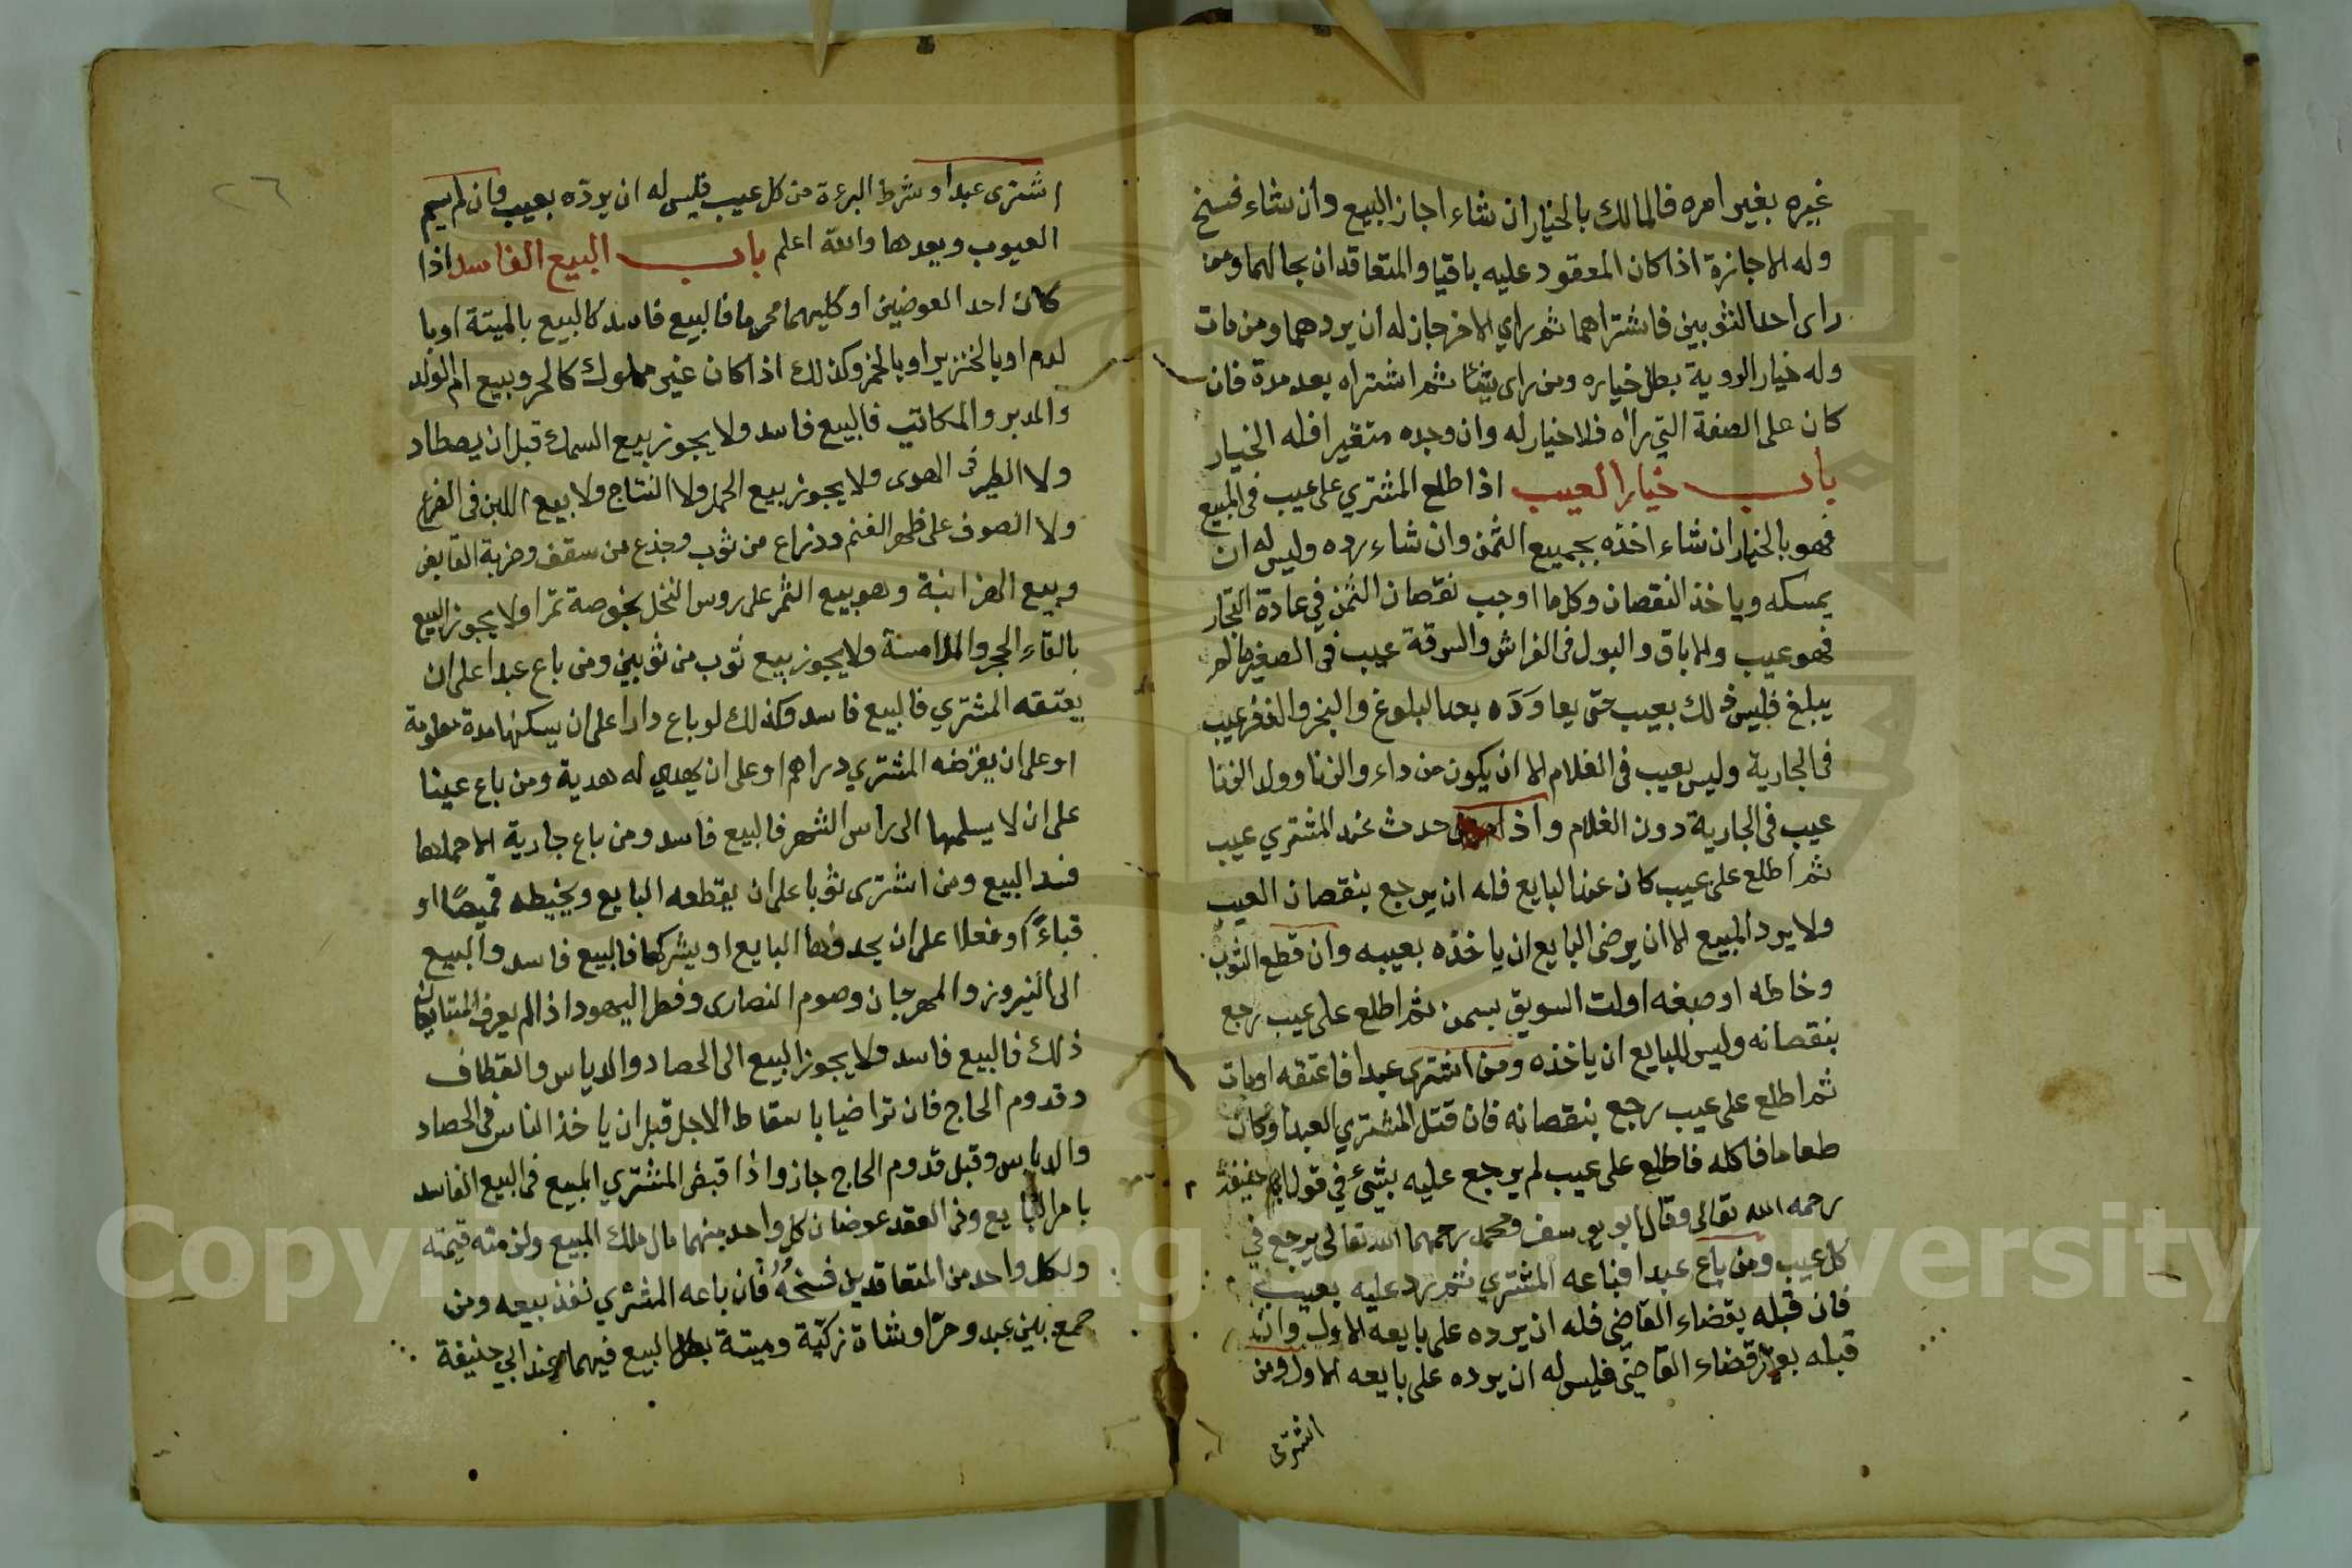 غيره بغير امره فالمالك بالخيار ان شاء اجاز البيع وان شاء فسخ
وله الاجازة اذا كان المعقود عليه باقيا والمتعاقدان بحالهما ومن
راى احد الثوبين فاشتراهما ثم راي الاخر جاز له ان يردهما ومن مات
وله خيار الروية بطل خياره ومن راى شيئا ثم اشتراه بعد مدة فان
كان على الصفة التي راه فلا خيار له وان وجده متغيرا فله الخيار
باب خيار العيب اذا طلع المشتري على عيب في المبيع
فهو بالخيار ان شاء اخذه بجميع الثمن وان شاء رده وليس له ان
يمسكه وياخذ النقصان وكل ما اوجب نقصان الثمن في عادة التجار
فهو عيب والاباق والبول في الفراش والسرقة عيب في الصغير مالم
يبلغ فليس ذلك بعيب حتى يعاوده بعد البلوغ والبخر والذفر عيب
في الجارية وليس بعيب في الغلام الا ان يكون من داء والزنا وولد الزنا
عيب في الجارية دون الغلام واذا حدث عند المشتري عيب
ثم اطلع على عيب كان عند البايع فله ان يرجع بنقصان العيب
ولا يرد المبيع الا ان يرضى البايع ان ياخذه بعيبه وان قطع الثوب
وخاطه او صبغه اولت السويق بسمن ثم اطلع على عيب رجع
بنقصانه وليس للبايع ان ياخذه ومن اشترى عبدا فاعتقه اومات
ثم اطلع على عيب رجع بنقصانه فان قتل المشتري العبد او كان
طعاما فاكله فاطلع على عيب لم يرجع عليه بشئ في قول ابي حنيفة
رحمه الله تعالى وقال ابو يوسف ومحمد رحمهما الله تعالى يرجع في
كل عيب ومن باع عبدا فباعه المشتري ثم رد عليه بعيب
فان قبله بقضاء القاضي فله ان يرده على بايعه الاول وان
قبله بغير قضاء القاضي فليس له ان يرده على بايعه الاول ومن
اشترى
٢٦
اشترى عبدا وشرط البرءة من كل عيب فليس له ان يردّه بعيب وان لم يسم
العيوب ويعدها والله اعلم باب البيع الفاسد اذا
كان احد العوضين او كليهما محرما فالبيع فاسد كالبيع بالميتة اوبا
لدم او بالخنزير او بالخمر وكذلك اذا كان غير مملوك كالحر وبيع ام الولد
والمدبر والمكاتب فالبيع فاسد ولا يجوز بيع السمك قبل ان يصطاد
ولا الطير في الهوى ولا يجوز بيع الحمل ولا النتاج ولا بيع اللبن في الضرع
ولا الصوف على ظهر الغنم وذراع من ثوب وجذع من سقف وضربة القايض
وبيع المزابنة وهو بيع الثمر على روس النخل بخرصه تمرا ولا يجوز البيع
بالقاء الحجر والملامسة ولا يجوز بيع ثوب من ثوبين ومن باع عبدا على ان
يعتقه المشتري فالبيع فاسد وكذلك لو باع دارا على ان يسكنها مدة معلومة
او على ان يقرضه المشتري دراهم او على ان يهدي له هدية ومن باع عينا
على ان لا يسلمها الى راس الشهر فالبيع فاسد ومن باع جارية الا حملها
فسد البيع ومن اشترى ثوبا على ان يقطعه البايع ويخيطه قميصًا او
قباءً او نعلا على ان يحدوها البايع او يشركها فالبيع فاسد والبيع
الى النيروز والمهرجان وصوم النصارى وفطر اليهود اذا لم يعرف المتبايعان
ذلك فالبيع فاسد ولا يجوز البيع الى الحصاد والدياس والقطاف
وقدوم الحاج فان تراضيا باسقاط الاجل قبل ان ياخذ الناس في الحصاد
والدياس وقبل قدوم الحاج جاز واذا قبض المشتري المبيع في البيع الفاسد
بامر البايع وفي العقد عوضان كل واحد منهما مال ملك المبيع ولزمته قيمته
ولكل واحد من المتعاقدين فسخهُ فان باعه المشتري نفذ بيعه ومن
جمع بين عبد وحرّ او شاة زكيّة وميتة بطل البيع فيهما عند ابي حنيفة
Copyright © King Saud University